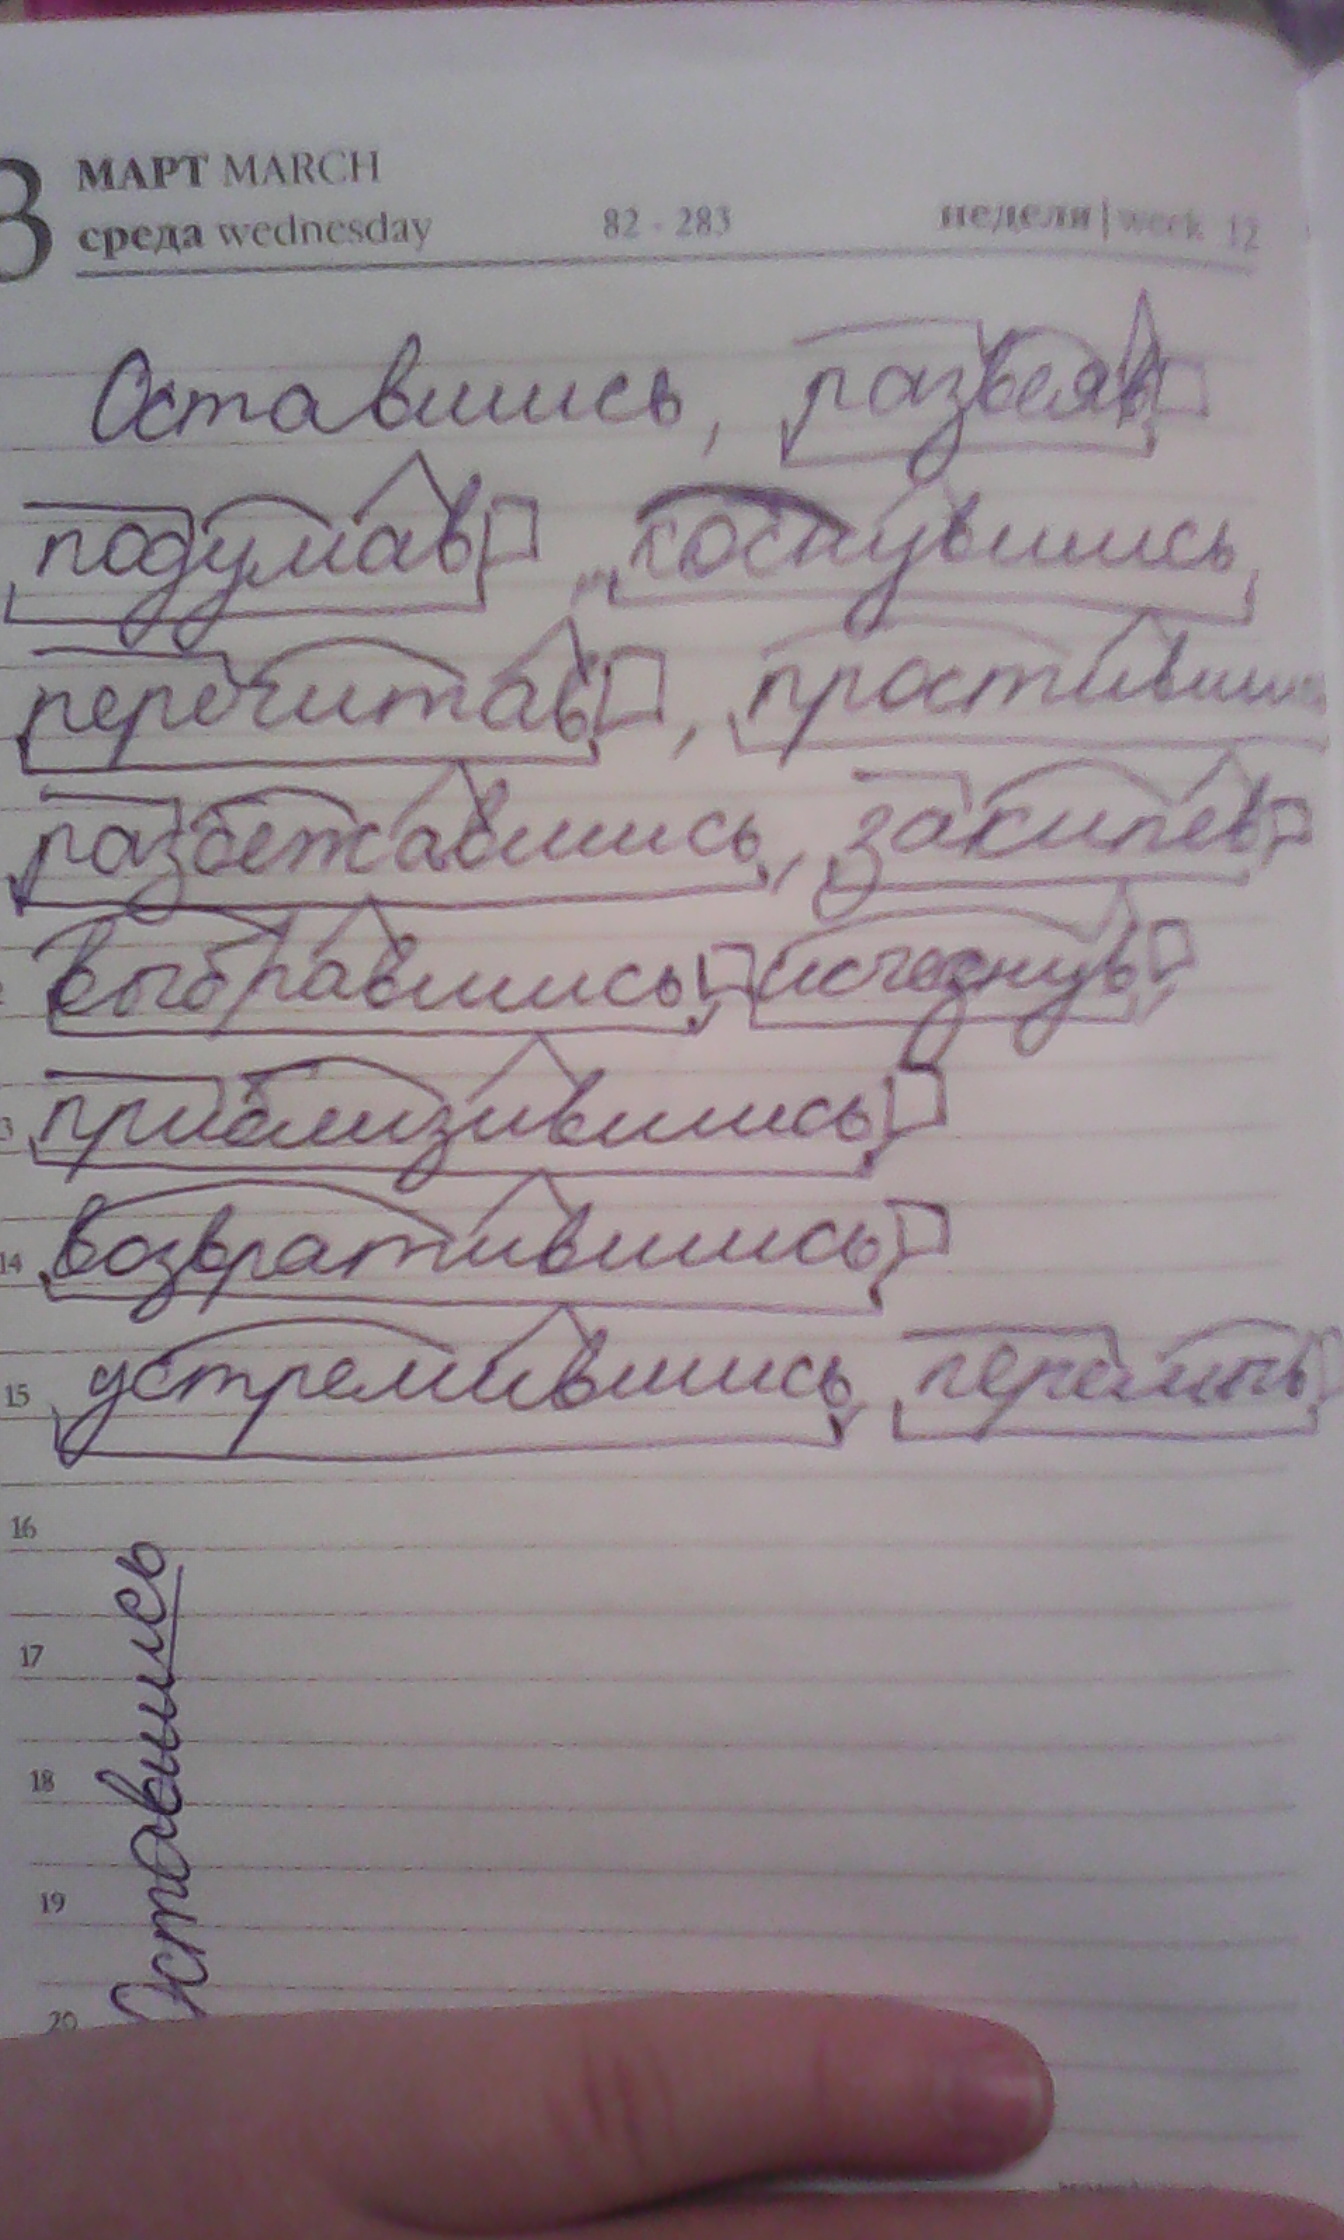 3 МАРТ MARCH
среда wednesday 82 - 283 неделя | week 12
Оставшись, развеяв
подумав, коснувшись,
перечитав, простивши
разбежавшись, закипев
выбравшись, исчезнув,
13 приблизившись,
14 возвратившись,
15 устремившись,
16
17
18
19
20
Оставшись